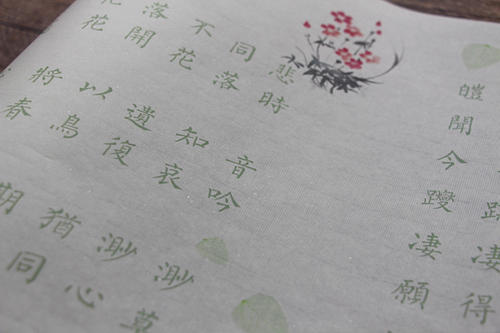 花落不同悲
花開花落時
將以遺知音
春鳥復哀吟
期猶渺渺
同心草
皚
聞
今
躞
凄凄
願得